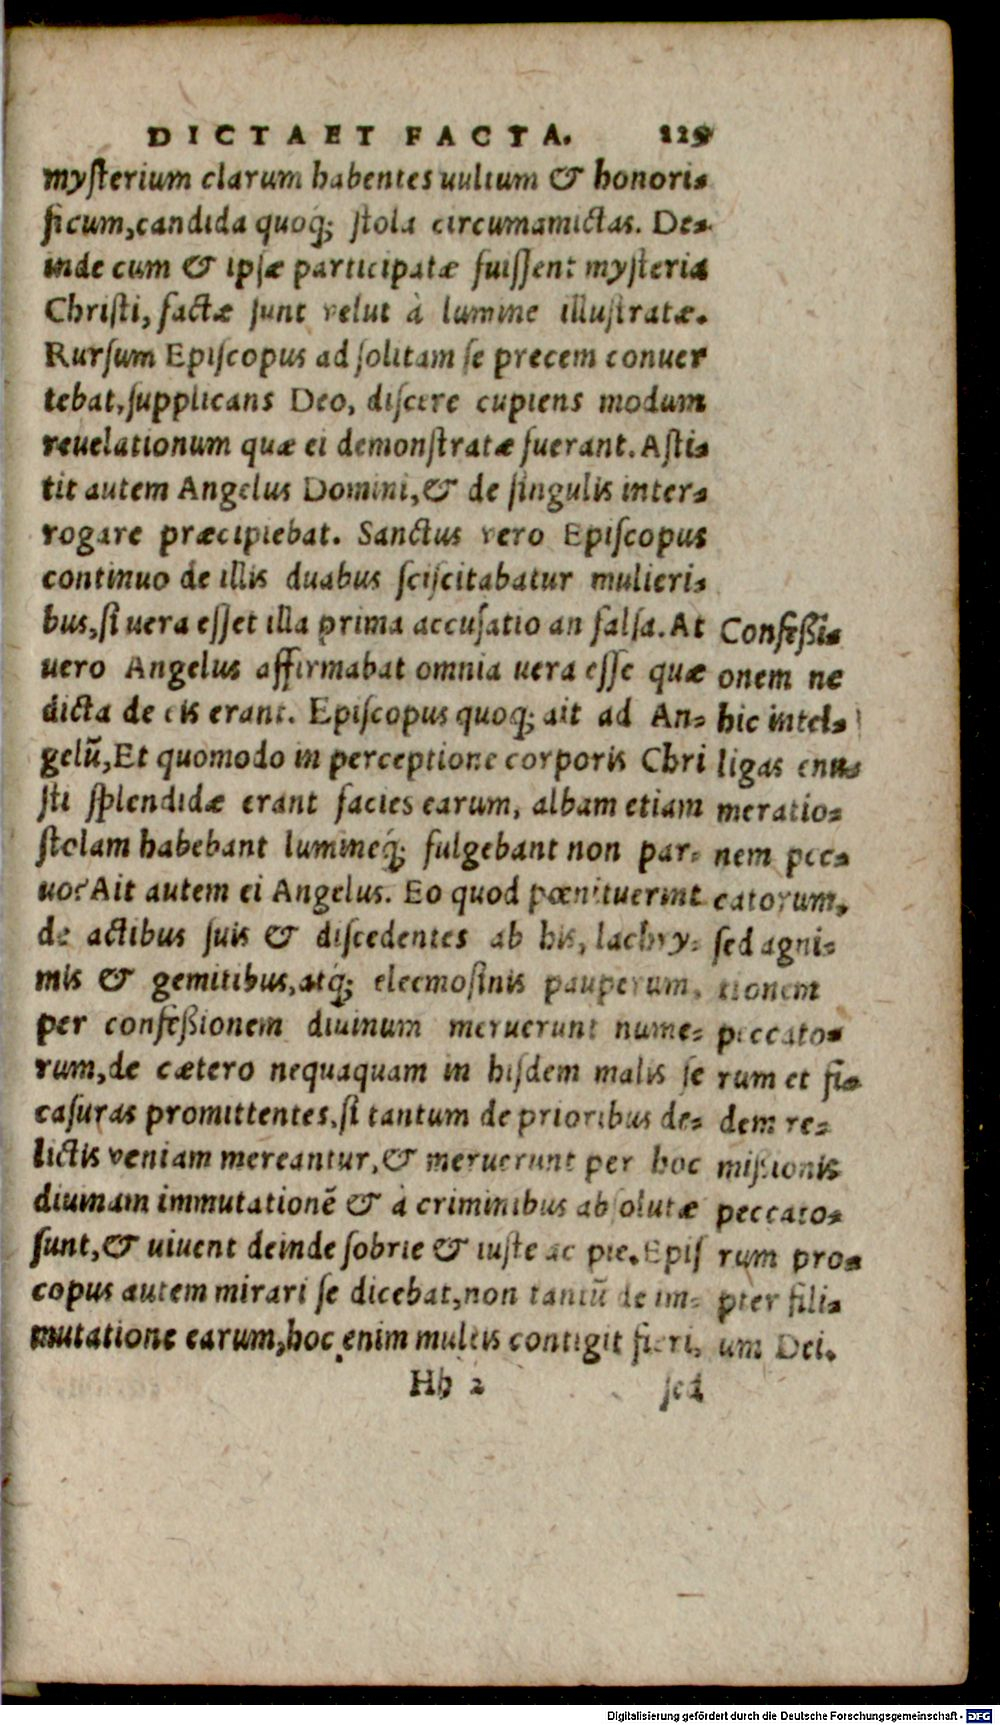 DICTA ET FACTA. 225
mysterium clarum habentes uultum & honori-
ficum, candida quoq; stola circumamictas. De-
inde cum & ipsæ participatæ fuissent mysteria
Christi, factæ sunt velut à lumine illustratæ.
Rursum Episcopus ad solitam se precem conuer
tebat, supplicans Deo, discere cupiens modum
reuelationum quæ ei demonstratæ fuerant. Asti-
tit autem Angelus Domini, & de singulis inter-
rogare præcipiebat. Sanctus vero Episcopus
continuo de illis duabus sciscitabatur mulieri-
bus, si uera esset illa prima accusatio an falsa. At
uero Angelus affirmabat omnia uera esse quæ
dicta de eis erant. Episcopus quoq; ait ad An-
gelū, Et quomodo in perceptione corporis Chri
sti splendidæ erant facies earum, albam etiam
stolam habebant lumineq́; fulgebant non par-
uo? Ait autem ei Angelus. Eo quod pœnituerint
de actibus suis & discedentes ab his, lachry-
mis & gemitibus, atq; eleemosinis pauperum,
per confeßionem diuinum meruerunt nume-
rum, de cætero nequaquam in hisdem malis se
casuras promittentes, si tantum de prioribus de-
lictis veniam mereantur, & meruerunt per hoc
diuinam immutationē & à criminibus absolutæ
sunt, & uiuent deinde sobrie & iuste ac pie. Epis
copus autem mirari se dicebat, non tantū de im-
mutatione earum, hoc enim multis contigit fieri,
Hh 2 sed
Confeßi-
onem ne
hic intel-
ligas enu-
meratio-
nem pec-
catorum,
sed agni-
tionem
peccato-
rum et fi-
dem re-
mißionis
peccato-
rum pro-
pter fili-
um Dei.
Digitalisierung gefördert durch die Deutsche Forschungsgemeinschaft - DFG